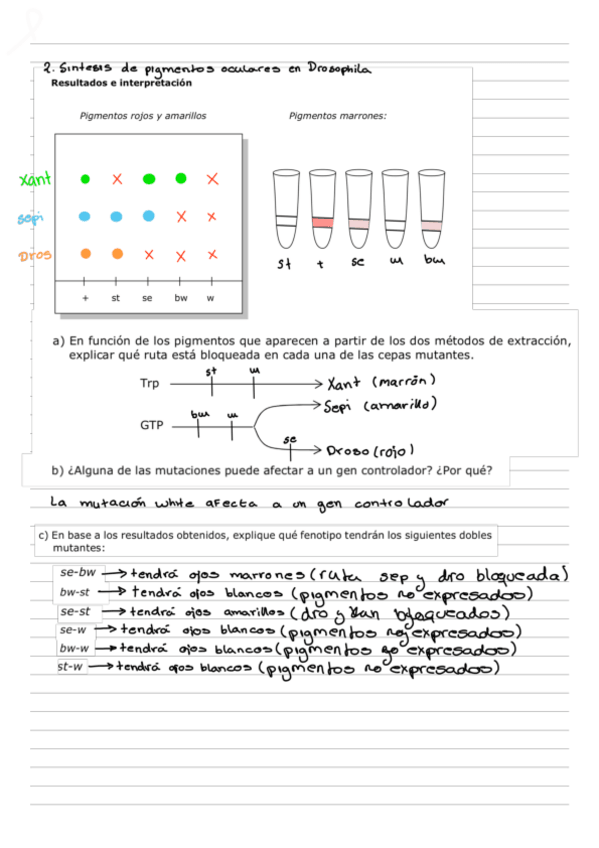 2. Sintesis de pigmentos oculares en Drosophila
Resultados e interpretación
Pigmentos rojos y amarillos
Pigmentos marrones:
Xant
Sepi
Dros
+ st se bw w
st + se w bw
a) En función de los pigmentos que aparecen a partir de los dos métodos de extracción,
explicar qué ruta está bloqueada en cada una de las cepas mutantes.
st w
Trp Xant (marrón)
Sepi (amarillo)
bw w
GTP
se
Droso (rojo)
b) ¿Alguna de las mutaciones puede afectar a un gen controlador? ¿Por qué?
La mutación white afecta a un gen controlador
c) En base a los resultados obtenidos, explique qué fenotipo tendrán los siguientes dobles
mutantes:
se-bw → tendrá ojos marrones (ruta sep y dro bloqueada)
bw-st → tendrá ojos blancos (pigmentos no expresados)
se-st → tendrá ojos amarillos (dro y xan bloqueados)
se-w → tendrá ojos blancos (pigmentos no expresados)
bw-w → tendrá ojos blancos (pigmentos no expresados)
st-w → tendrá ojos blancos (pigmentos no expresados)